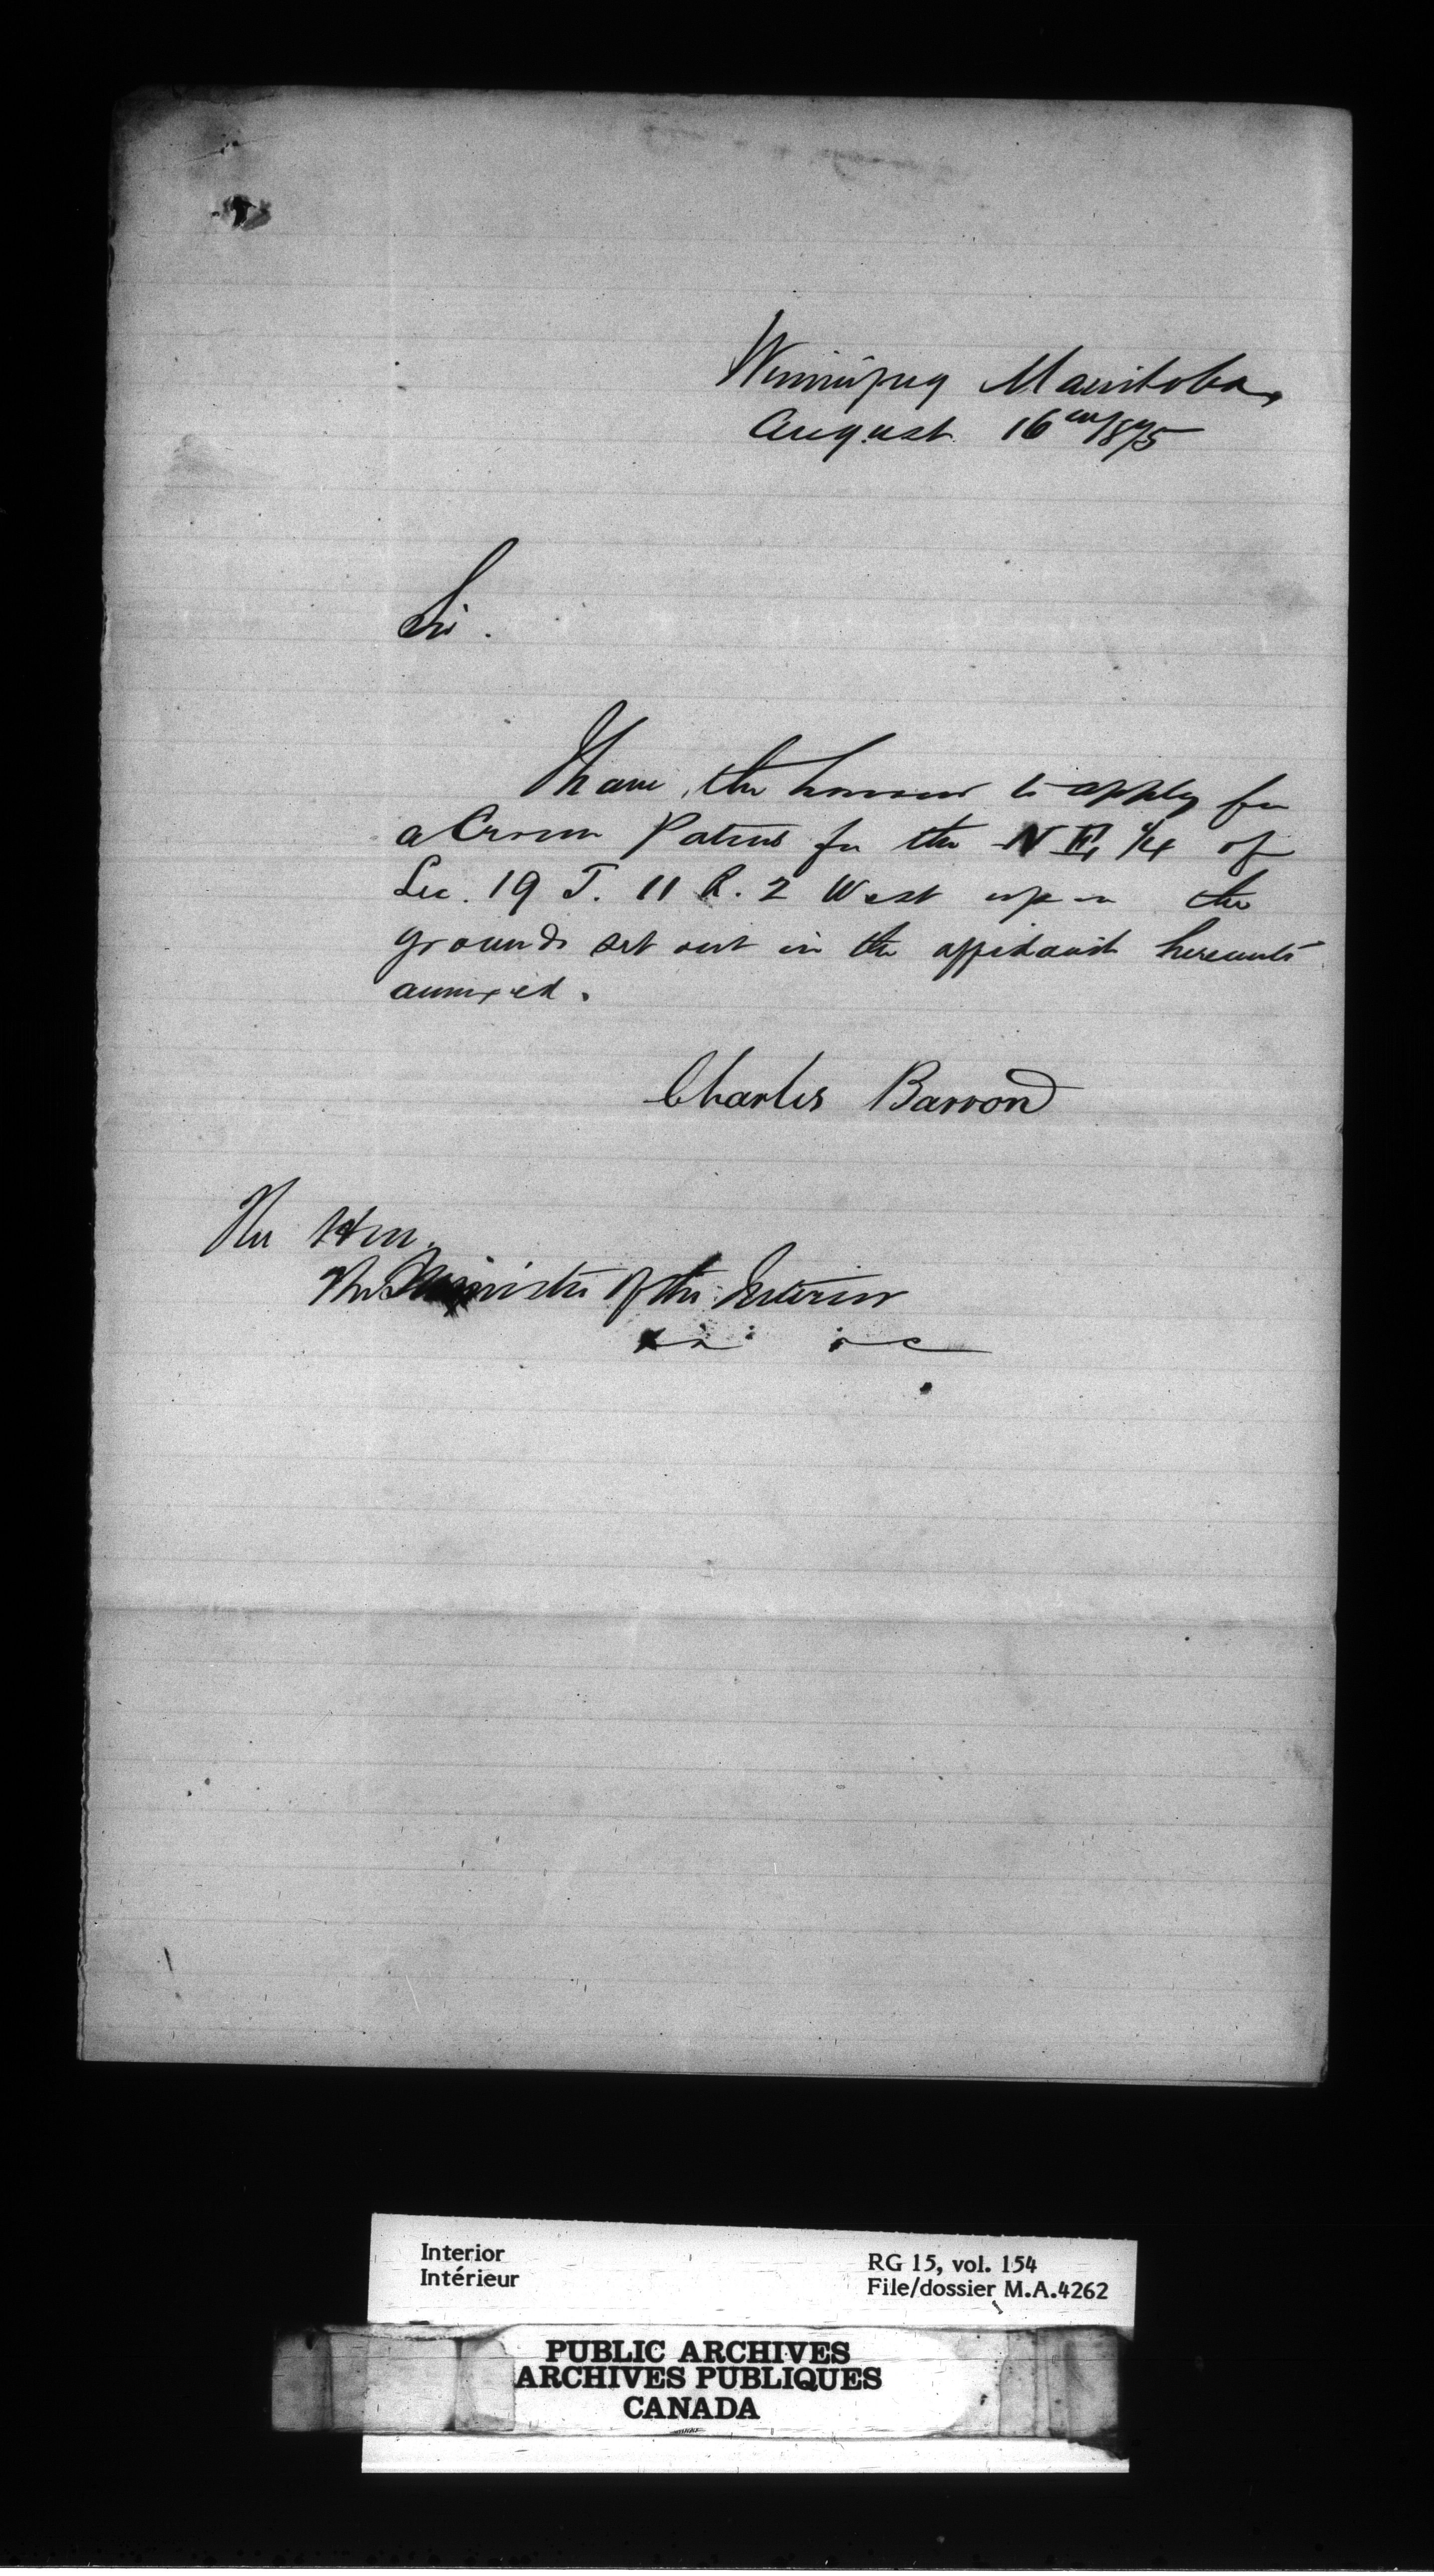 Winnipeg Manitoba,
August 16th/875
Sir.
I have the honour to apply for
a Crown Patent for the N E 1/4 of
Sec. 19 T. 11 R. 2 West upon the
grounds set out in the affidavit hereunto
annexed.
Charles Barron
The Hon.
The Minister of the Interior
Interior
Intérieur
RG 15, vol. 154
File/dossier M.A.4262
PUBLIC ARCHIVES
ARCHIVES PUBLIQUES
CANADA